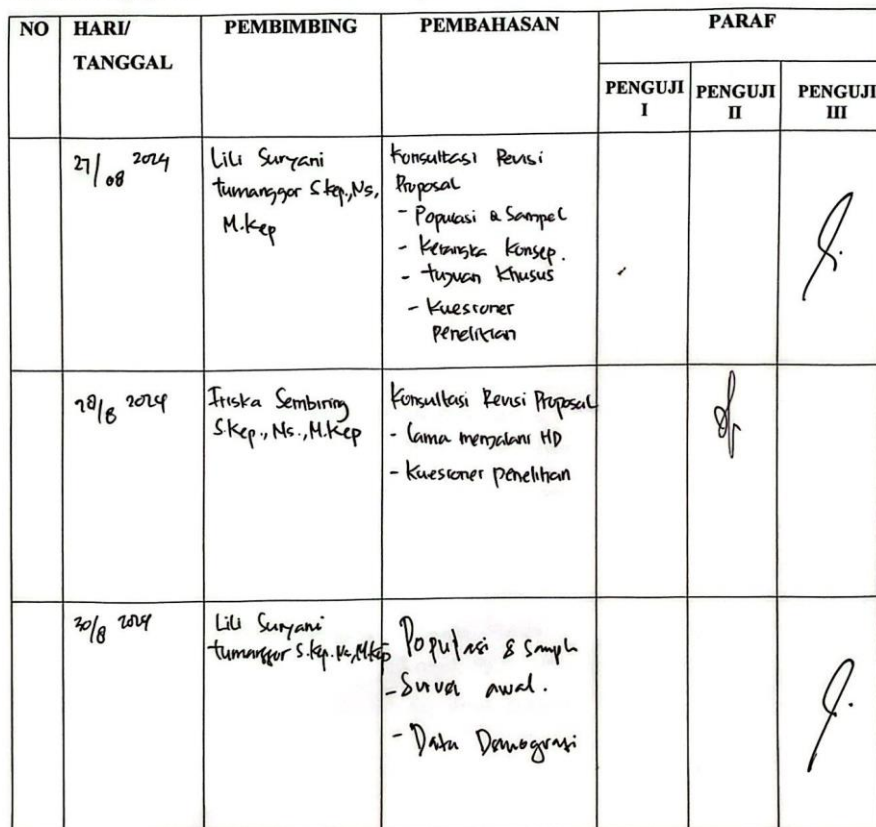 NO HARI/ PEMBIMBING PEMBAHASAN PARAF
TANGGAL
PENGUJI PENGUJI PENGUJI
I II III
27/08 2024
Lili Suryani
tumanggor S.kep.,Ns,
M.kep
Konsultasi Revisi
Proposal
- Populasi & Sampel
- Kerangka Konsep.
- tujuan Khusus
- Kuesioner
penelitian
28/8 2024
Friska Sembiring
S.Kep., Ns., M.Kep
Konsultasi Revisi Proposal
- Lama menjalani HD
- Kuesioner penelitian
30/8 2024
Lili Suryani
tumanggor S.kep.Ns,M.Kep
Populasi & Sampel
- Survei awal.
- Data Demografi